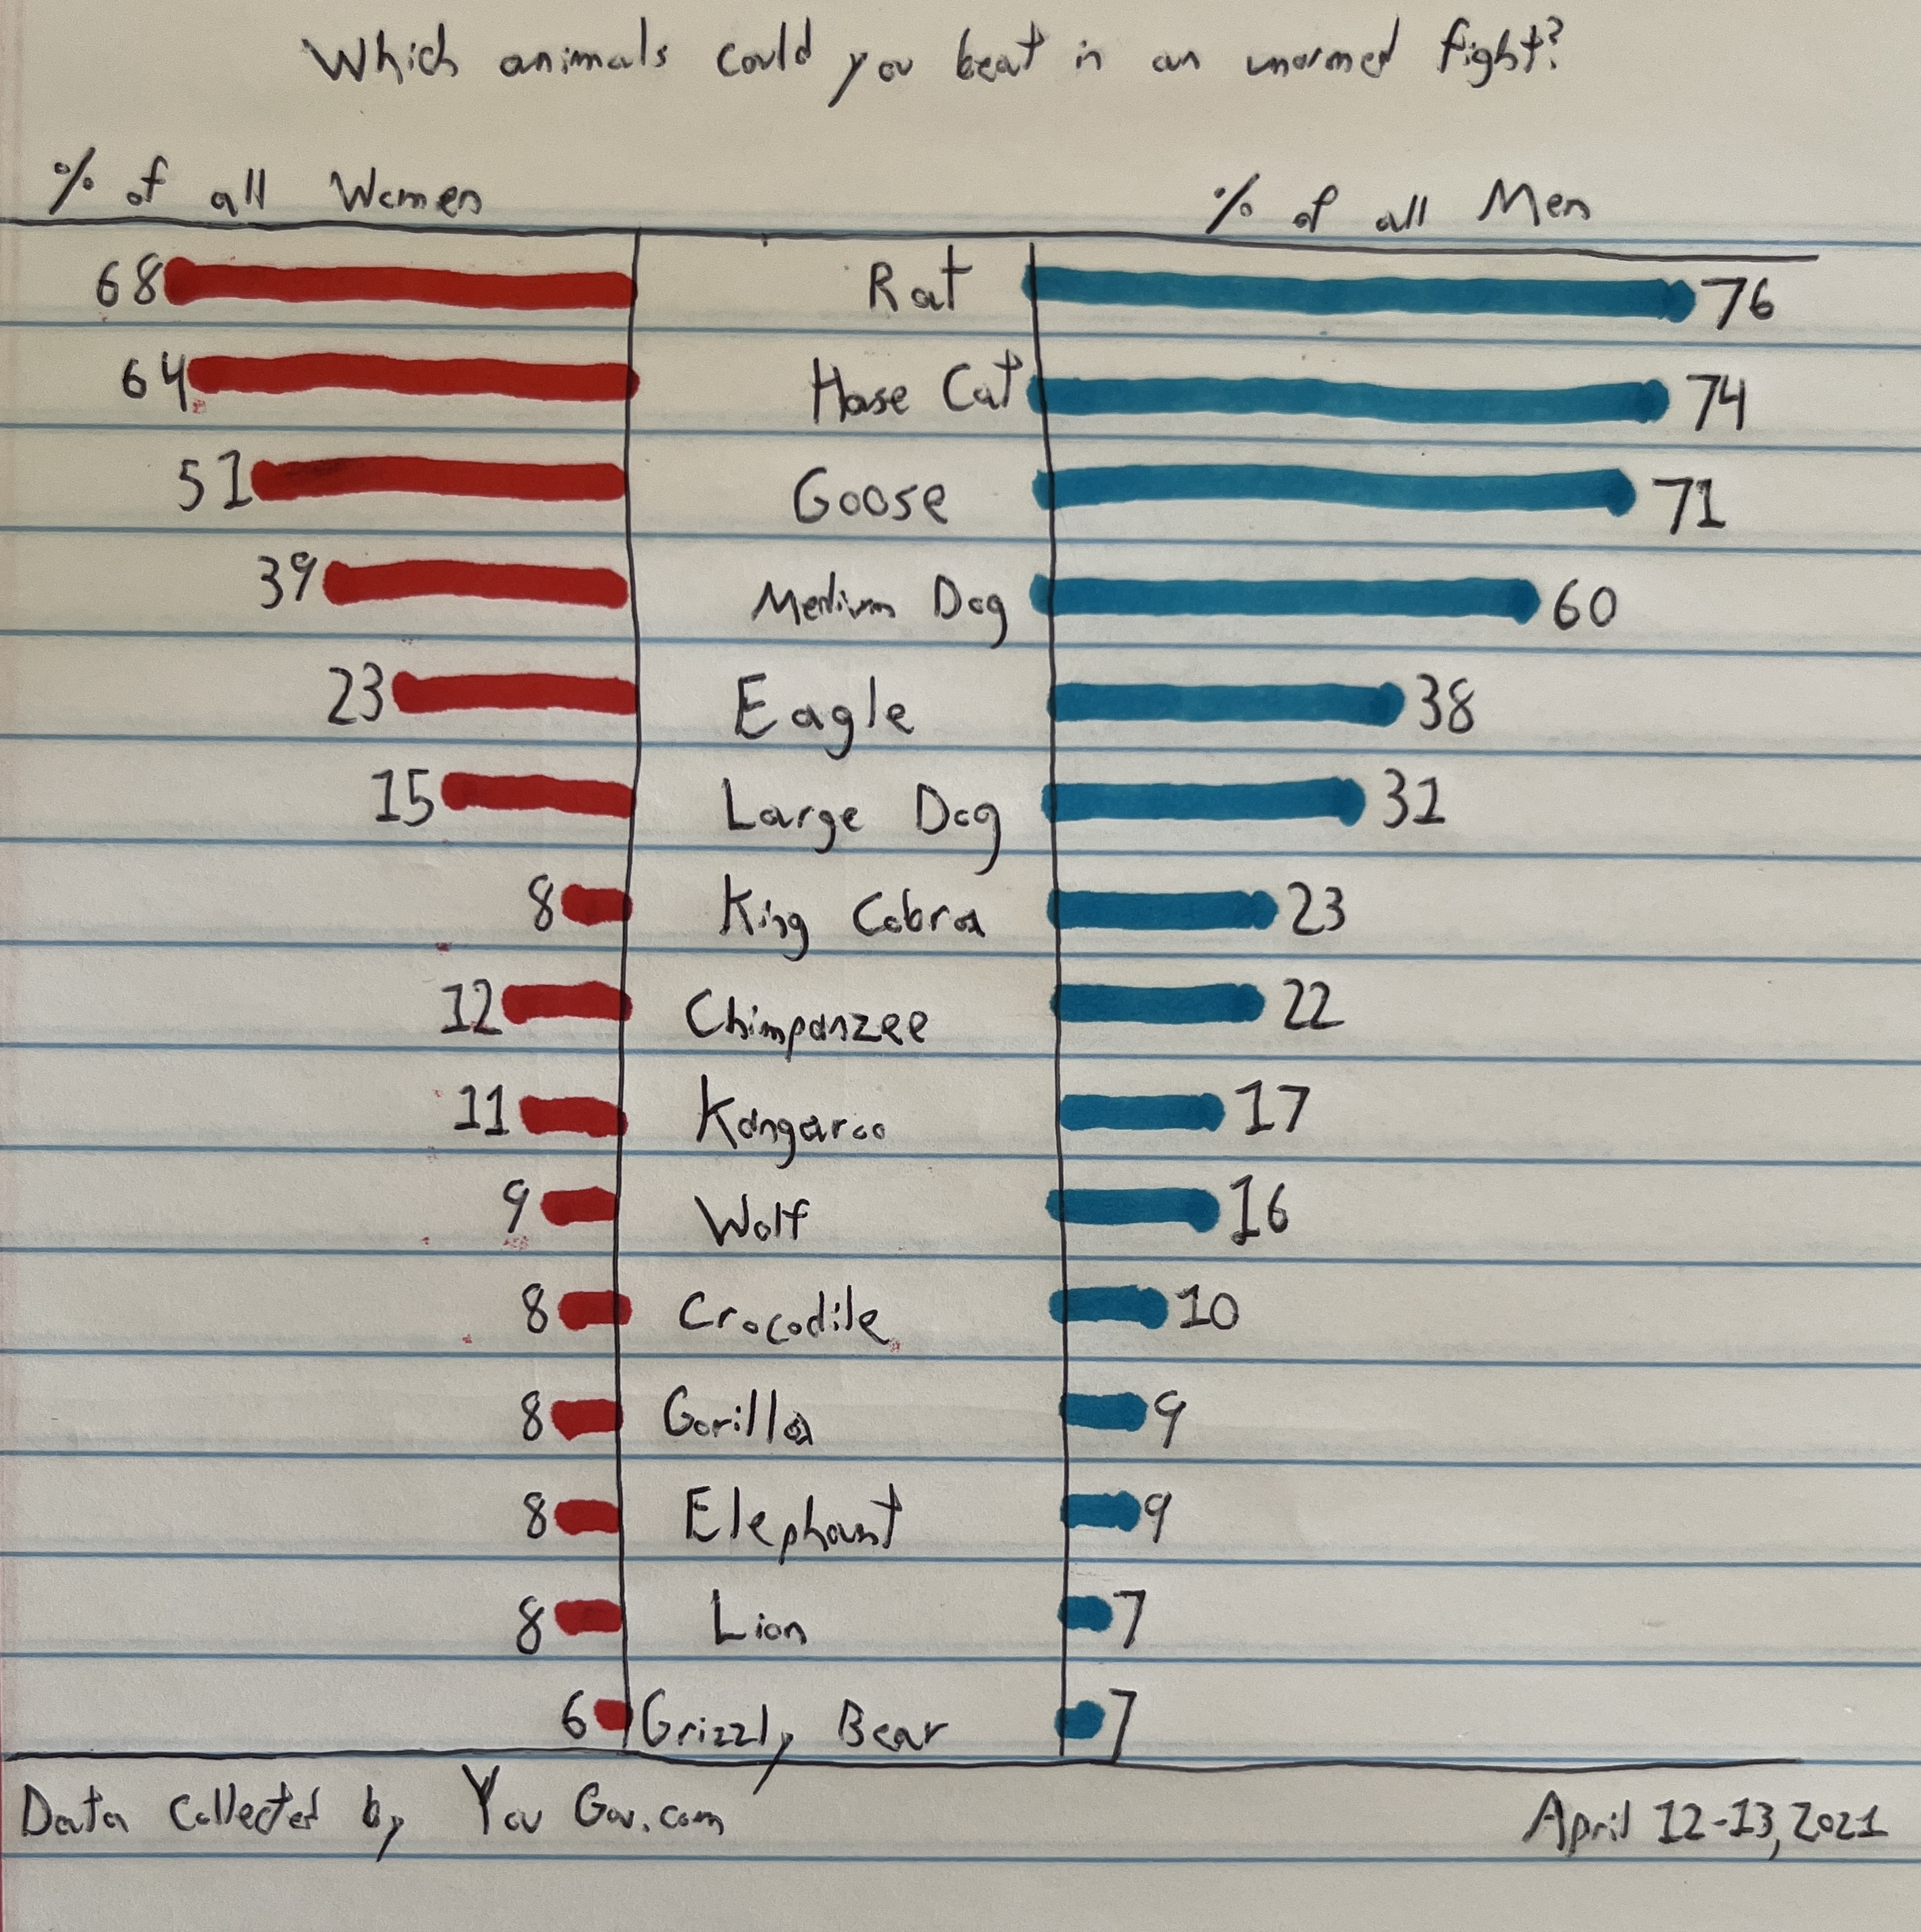 Which animals could you beat in an unarmed fight?
% of all Women % of all Men
68 Rat 76
64 House Cat 74
51 Goose 71
39 Medium Dog 60
23 Eagle 38
15 Large Dog 31
8 King Cobra 23
12 Chimpanzee 22
11 Kangaroo 17
9 Wolf 16
8 Crocodile 10
8 Gorilla 9
8 Elephant 9
8 Lion 7
6 Grizzly Bear 7
Data Collected by You Gov.com April 12-13, 2021